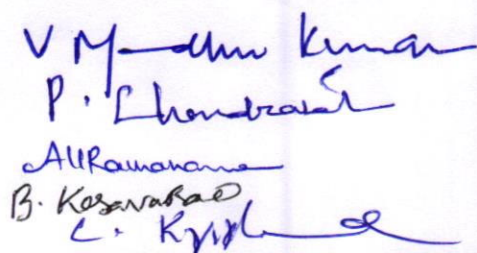 V Madhu Kumar
P. Chandrasek
AVRamanama
B. KesavaRao
C. Krish